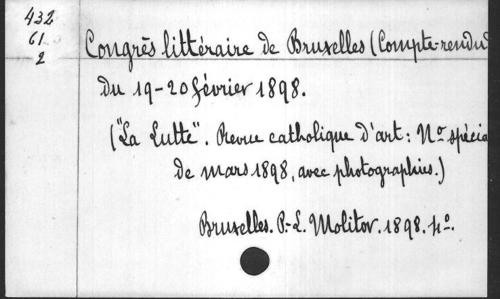 432
61
2
Congrès littéraire de Bruxelles (Compte-rendu
du 19-20 février 1898.
("La Lutte". Revue catholique d'art: No spécia
de mars 1898, avec photographies.)
Bruxelles. P.-L. Molitor. 1898. 4o.